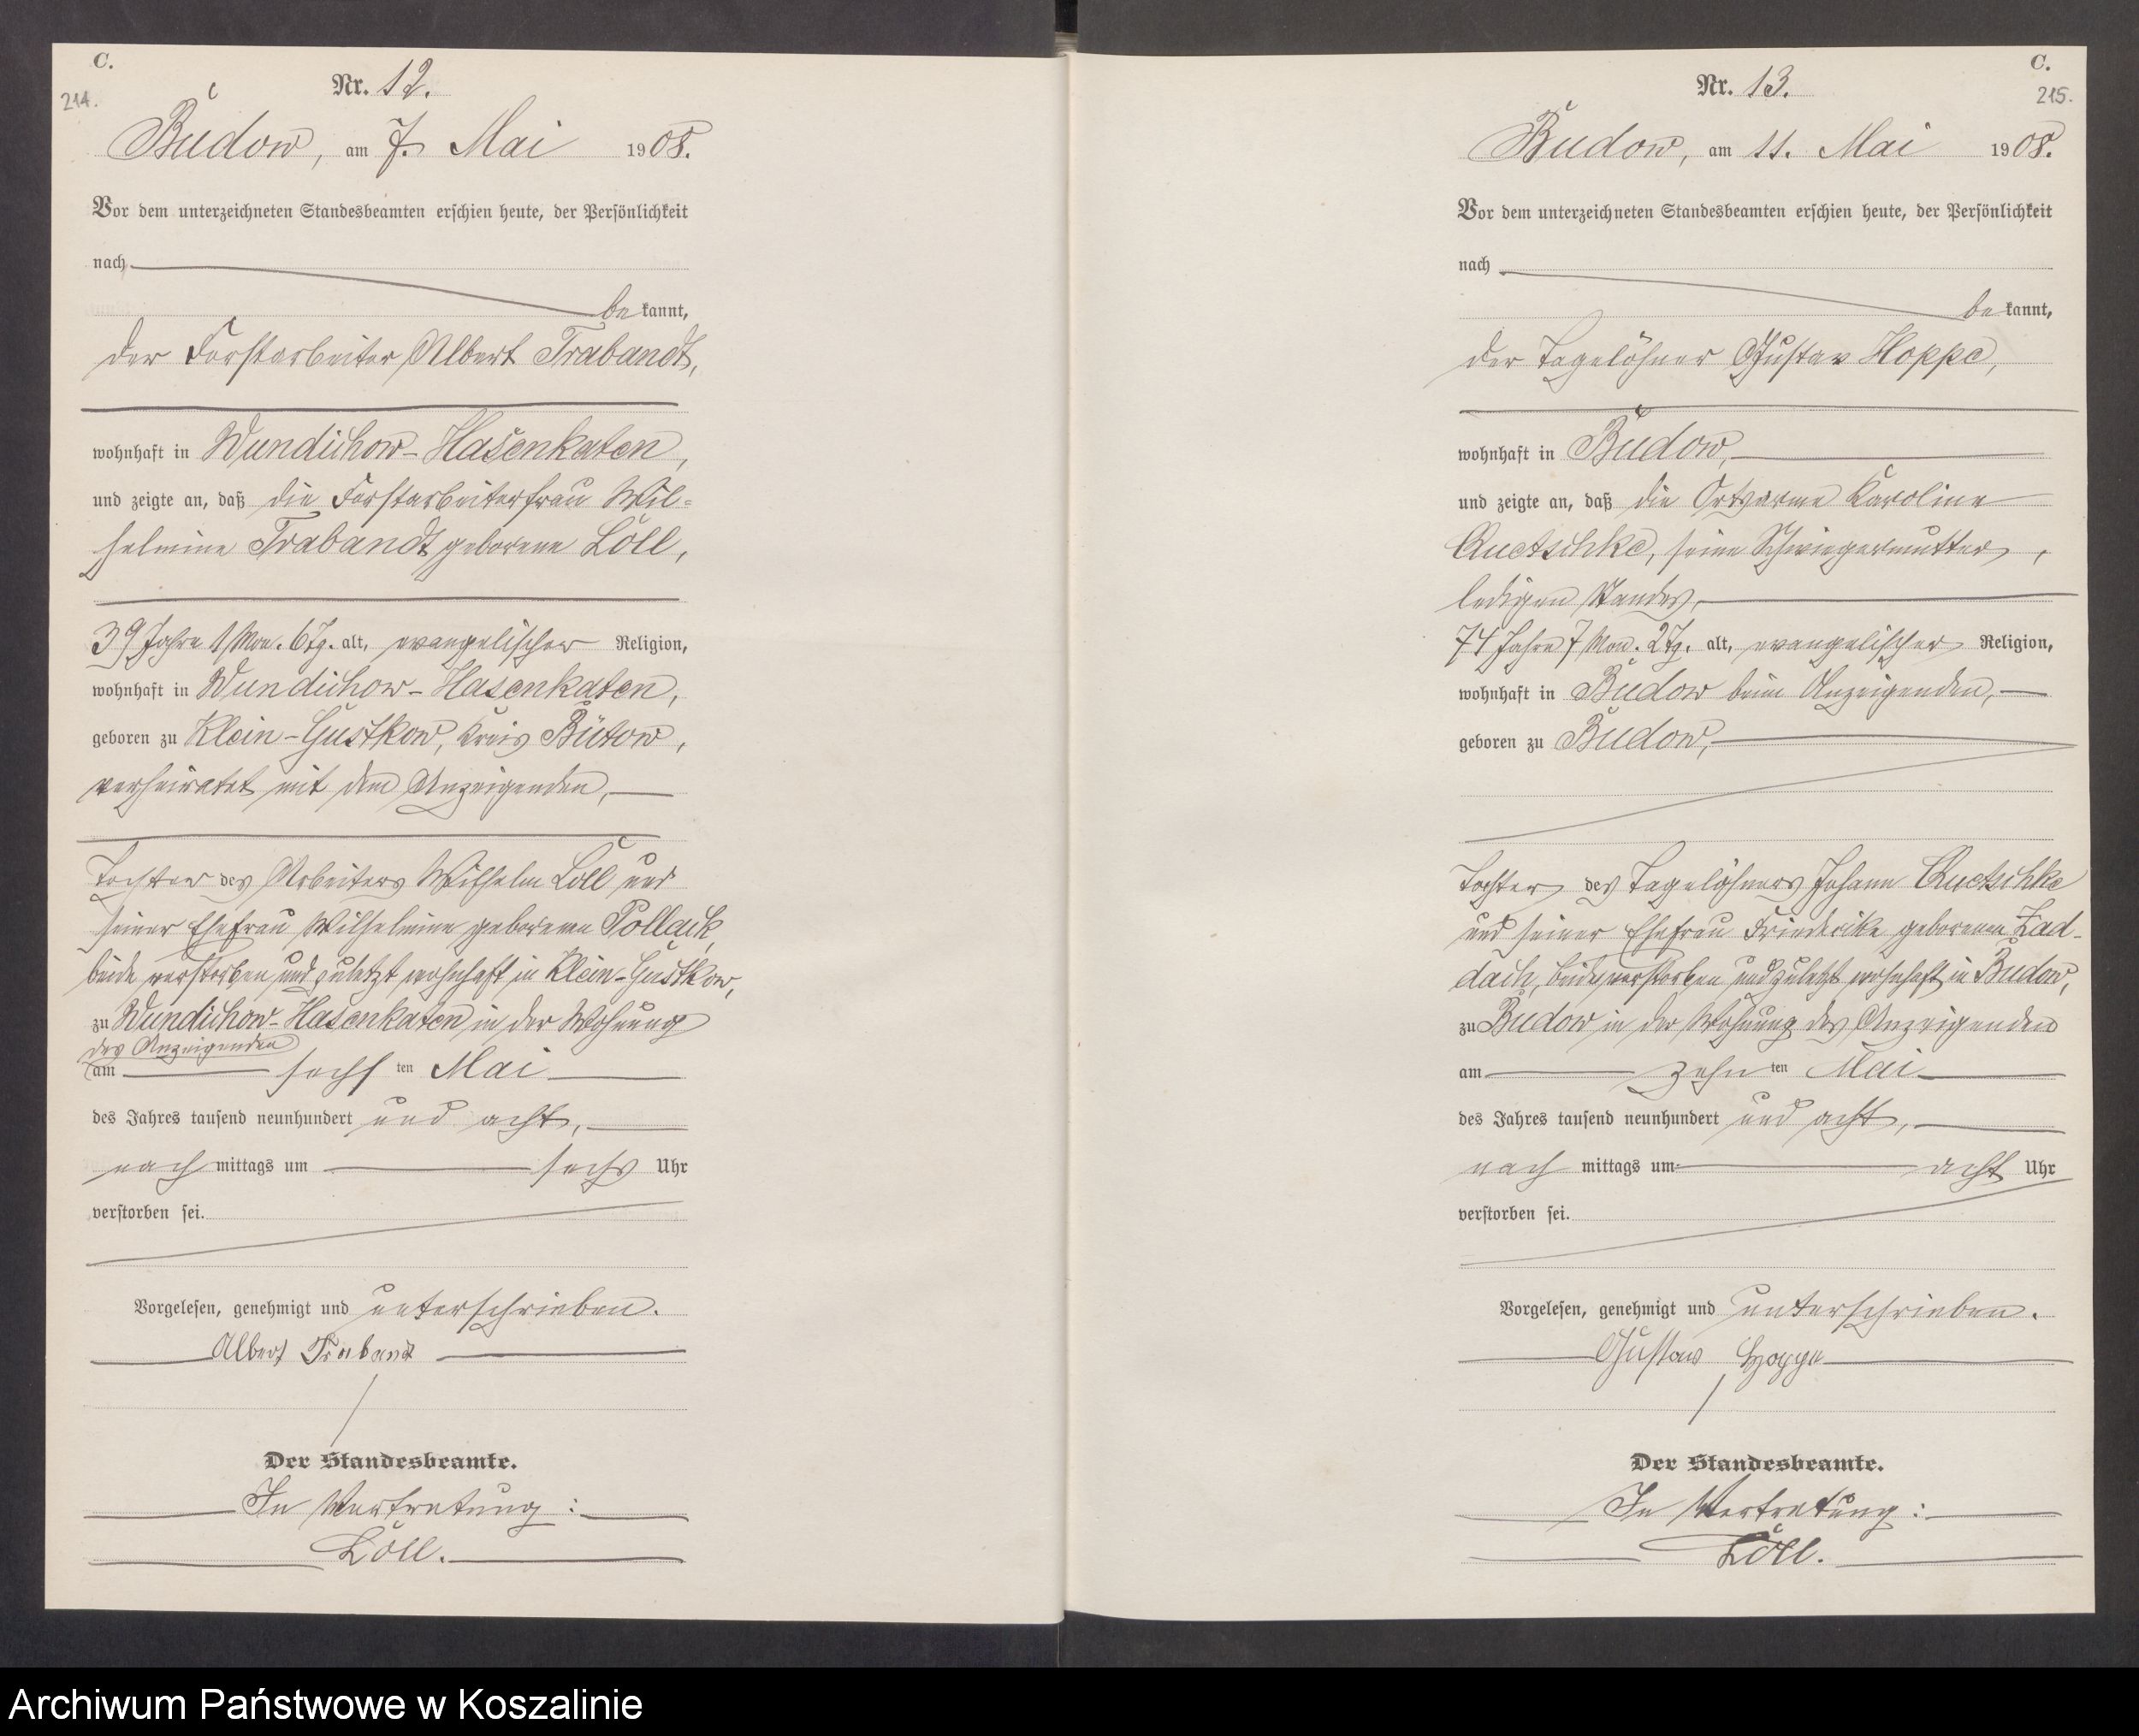 C.
214.
Nr. 12.
Budow, am 7. Mai 1908.
Vor dem unterzeichneten Standesbeamten erschien heute, der Persönlichkeit
nach
be kannt,
der Forstarbeiter Albert Trabandt,
wohnhaft in Wundichow-Hasenkaten,
und zeigte an, daß die Forstarbeiterfrau Wil-
helmine Trabandt geborene Löll,
39 Jahre 1 Mon. 6 Tg. alt, evangelischer Religion,
wohnhaft in Wundichow-Hasenkaten,
geboren zu Klein-Gustkow, Kreis Bütow,
verheiratet mit dem Anzeigenden,
Tochter des Arbeiters Wilhelm Löll und
seiner Ehefrau Wilhelmine geborenen Pollack,
beide verstorben und zuletzt wohnhaft in Klein-Gustkow,
zu Wundichow-Hasenkaten in der Wohnung
des Anzeigenden
am sechs ten Mai
des Jahres tausend neunhundert und acht,
nach mittags um sechs Uhr
verstorben sei.
Vorgelesen, genehmigt und unterschrieben.
Albert Trabandt
Der Standesbeamte.
In Vertretung:
Löll.
C.
215.
Nr. 13.
Budow, am 11. Mai 1908.
Vor dem unterzeichneten Standesbeamten erschien heute, der Persönlichkeit
nach
be kannt,
der Tagelöhner Gustav Hoppe,
wohnhaft in Budow,
und zeigte an, daß die Ortsarme Karoline
Quetschke, seine Schwiegermutter,
ledigen Standes,
74 Jahre 7 Mon. 2 Tg. alt, evangelischer Religion,
wohnhaft in Budow beim Anzeigenden,
geboren zu Budow,
Tochter des Tagelöhners Johann Quetschke
und seiner Ehefrau Friederike geborenen Zad-
dach, beide verstorben und zuletzt wohnhaft in Budow,
zu Budow in der Wohnung des Anzeigenden
am zehn ten Mai
des Jahres tausend neunhundert und acht,
nach mittags um acht Uhr
verstorben sei.
Vorgelesen, genehmigt und unterschrieben.
Gustav Hoppe
Der Standesbeamte.
In Vertretung:
Löll.
Archiwum Państwowe w Koszalinie